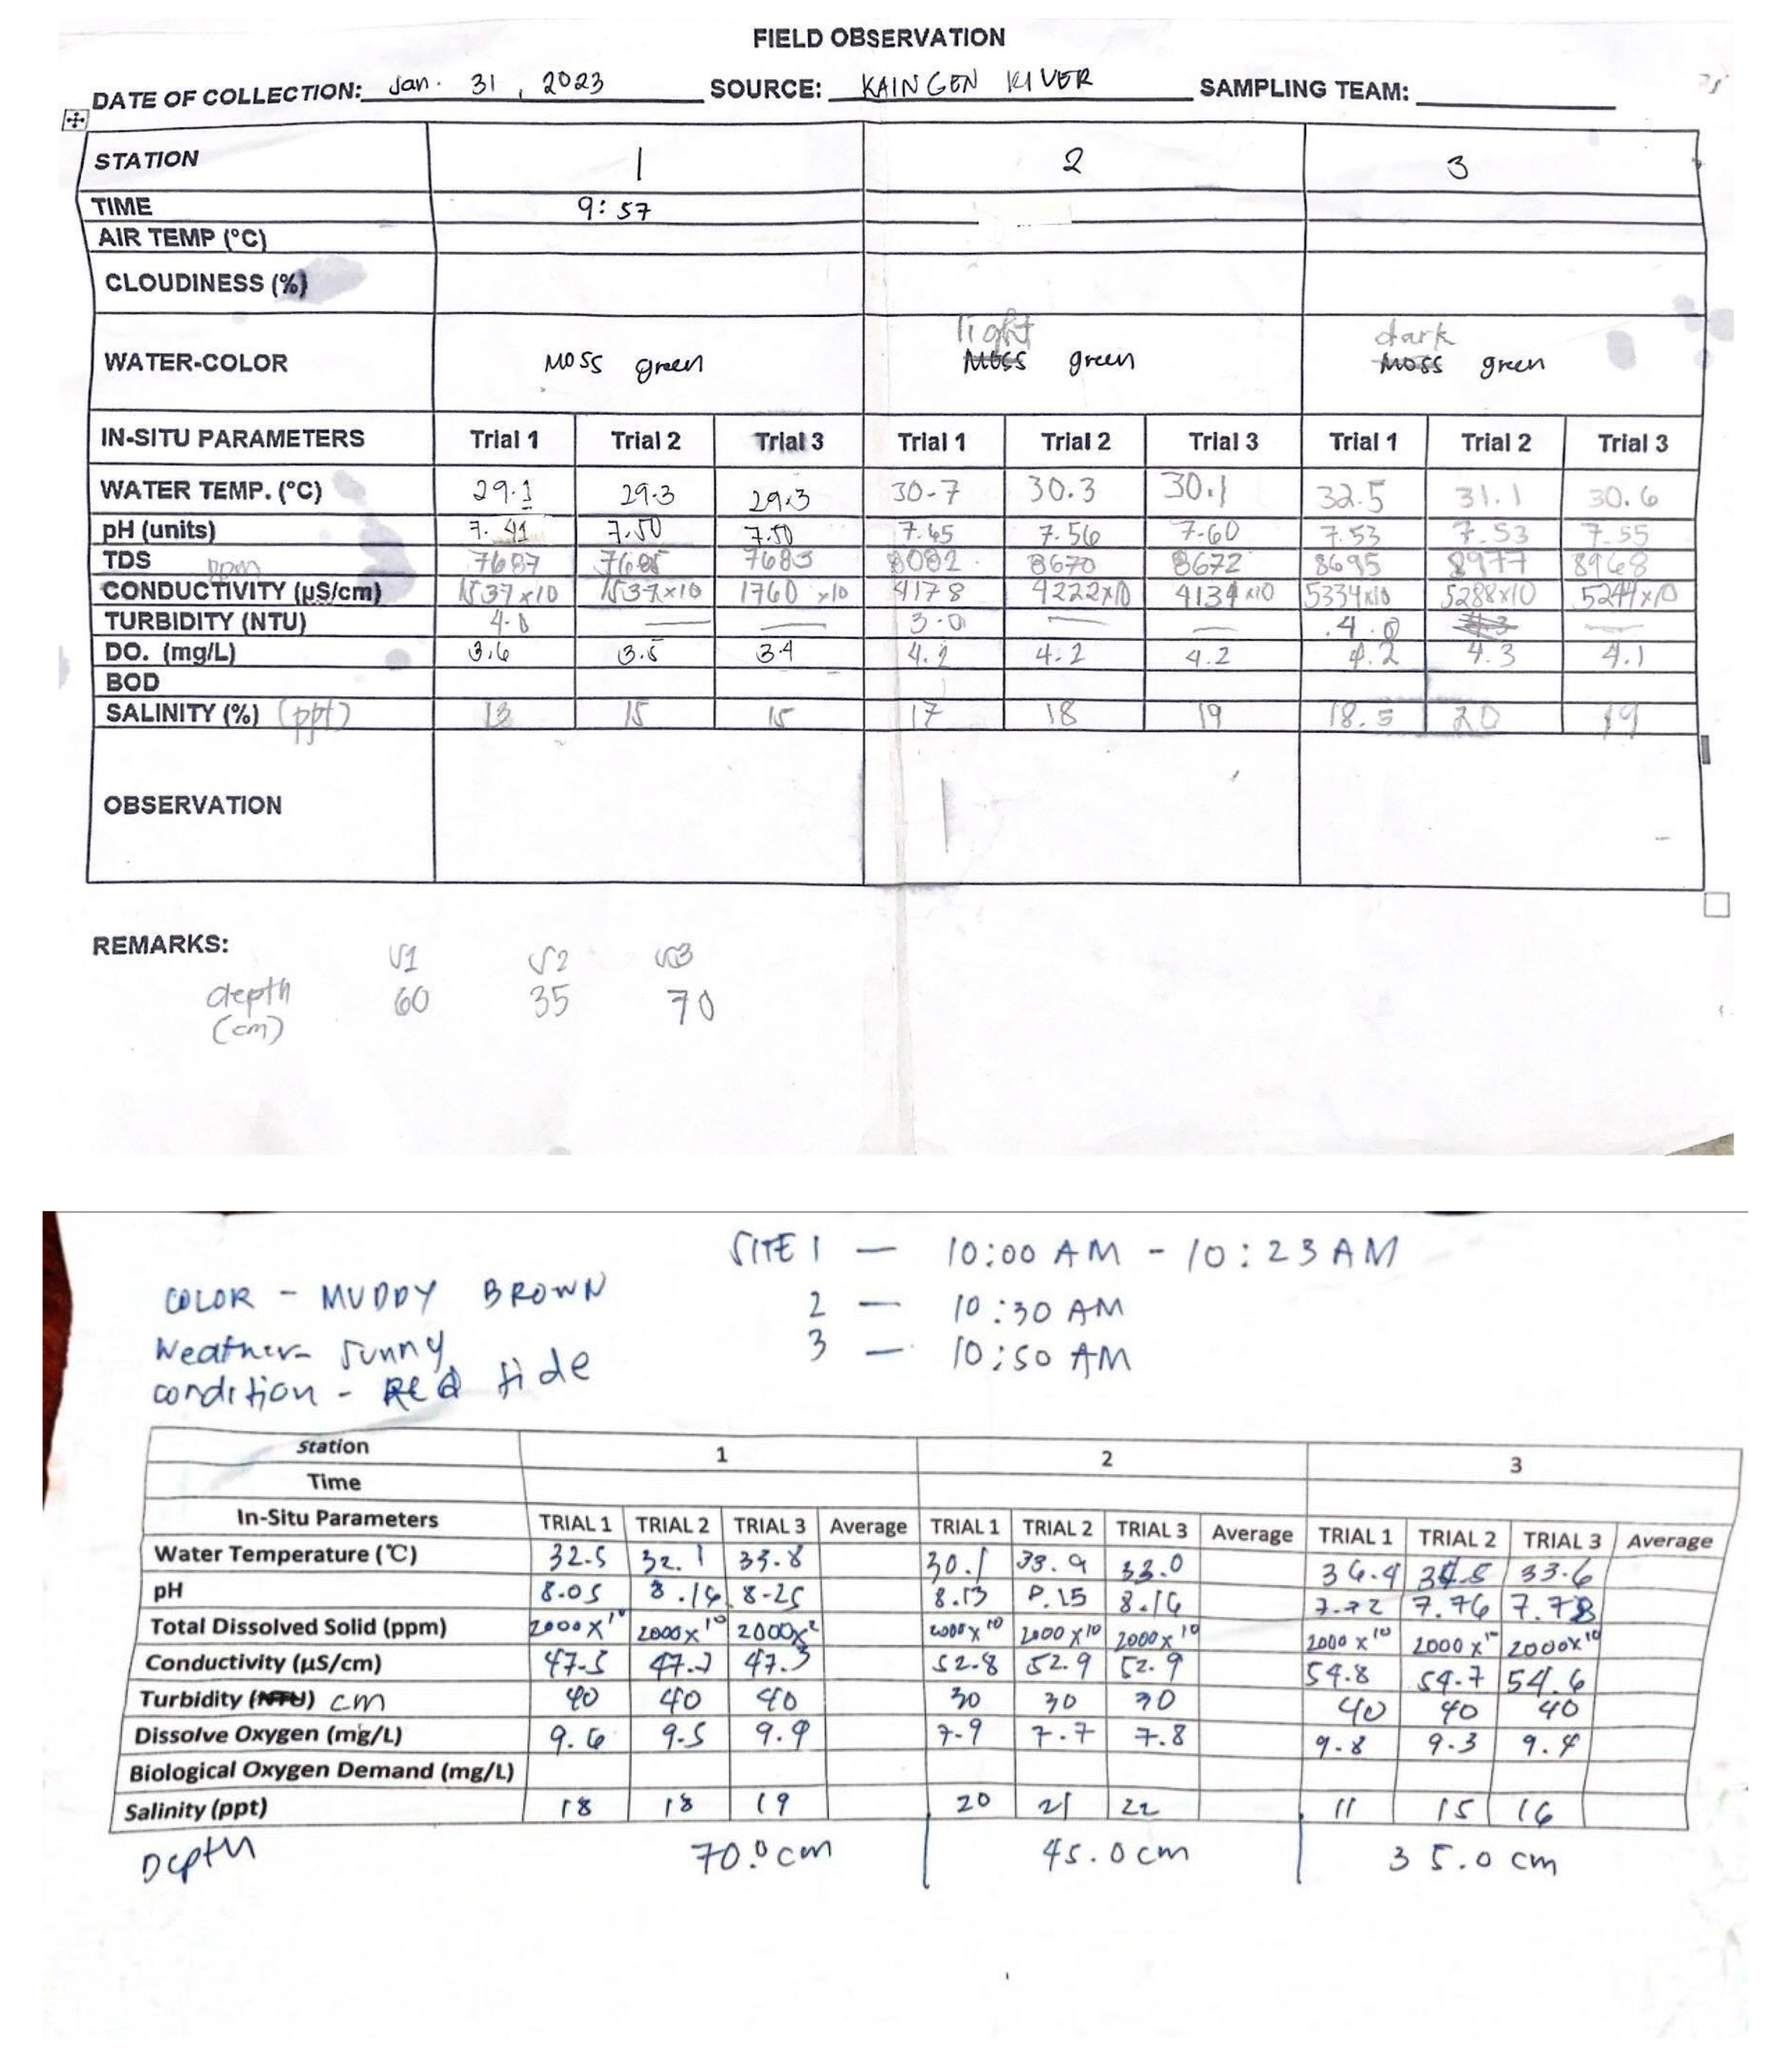 FIELD OBSERVATION
DATE OF COLLECTION: Jan. 31, 2023 SOURCE: KAINGEN RIVER SAMPLING TEAM:
STATION 1 2 3
TIME 9:57
AIR TEMP (°C)
CLOUDINESS (%)
light dark
WATER-COLOR Moss green Moss green Moss green
IN-SITU PARAMETERS Trial 1 Trial 2 Trial 3 Trial 1 Trial 2 Trial 3 Trial 1 Trial 2 Trial 3
WATER TEMP. (°C) 29.1 29.3 29.3 30.7 30.3 30.1 32.5 31.1 30.6
pH (units) 7.41 7.50 7.50 7.45 7.56 7.60 7.53 7.53 7.55
TDS ppm 7687 7685 7683 8082 8670 8672 8695 8977 8968
CONDUCTIVITY (µS/cm) 1537x10 1537x10 1760 x10 4178 4222x10 4134 x10 5334x10 5288x10 5244x10
TURBIDITY (NTU) 4.0 — — 3.0 — — 4.0 —
DO. (mg/L) 3.6 3.5 3.4 4.2 4.2 4.2 4.2 4.3 4.1
BOD
SALINITY (%) (ppt) 13 15 15 17 18 19 18.5 20 19
OBSERVATION
REMARKS: S1 S2 S3
depth 60 35 70
(cm)
SITE 1 — 10:00 AM - 10:23 AM
COLOR - MUDDY BROWN 2 — 10:30 AM
Weather- sunny 3 — 10:50 AM
condition - Red tide
Station 1 2 3
Time
In-Situ Parameters TRIAL 1 TRIAL 2 TRIAL 3 Average TRIAL 1 TRIAL 2 TRIAL 3 Average TRIAL 1 TRIAL 2 TRIAL 3 Average
Water Temperature (°C) 32.5 32.1 33.8 30.1 33.9 33.0 34.5 33.6
pH 8.05 8.16 8.25 8.13 8.15 8.16 7.72 7.76 7.78
Total Dissolved Solid (ppm) 2000x10 2000x10 2000x 2000x10 2000x10 2000x10 2000x10 2000x10 2000x10
Conductivity (µS/cm) 47.5 47.2 47.3 52.8 52.9 52.9 54.8 54.7 54.6
Turbidity (NTU) cm 40 40 40 30 30 30 40 40 40
Dissolve Oxygen (mg/L) 9.6 9.5 9.9 7.9 7.7 7.8 9.8 9.3 9.4
Biological Oxygen Demand (mg/L)
Salinity (ppt) 18 18 19 20 21 22 11 15 16
Depth 70.0 cm 45.0 cm 35.0 cm